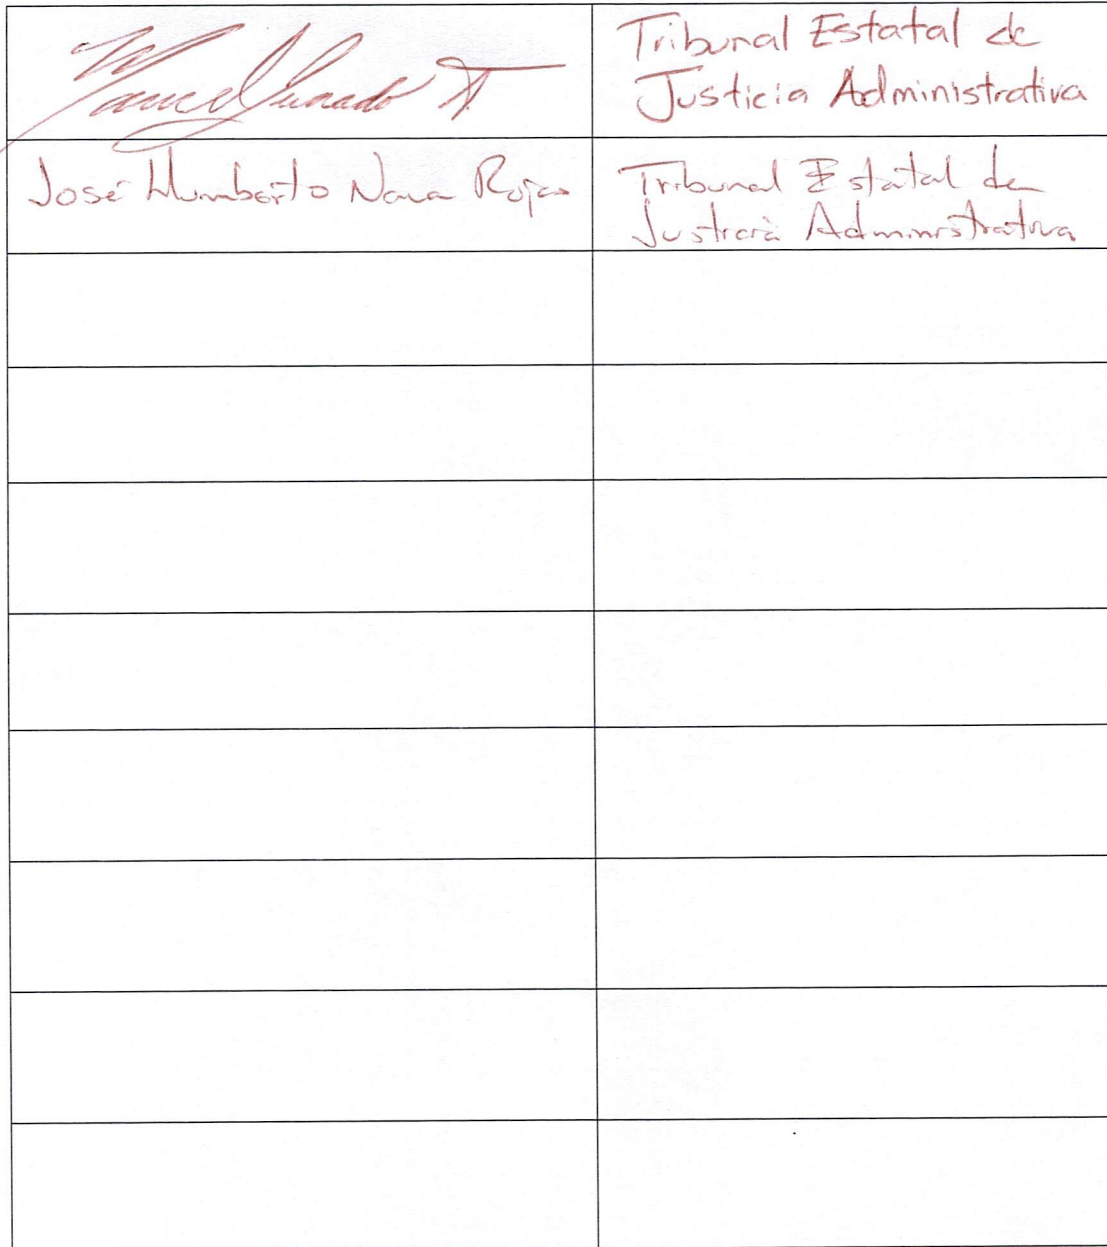 Tribunal Estatal de
Justicia Administrativa
José Humberto Nava Rojas
Tribunal Estatal de
Justicia Administrativa